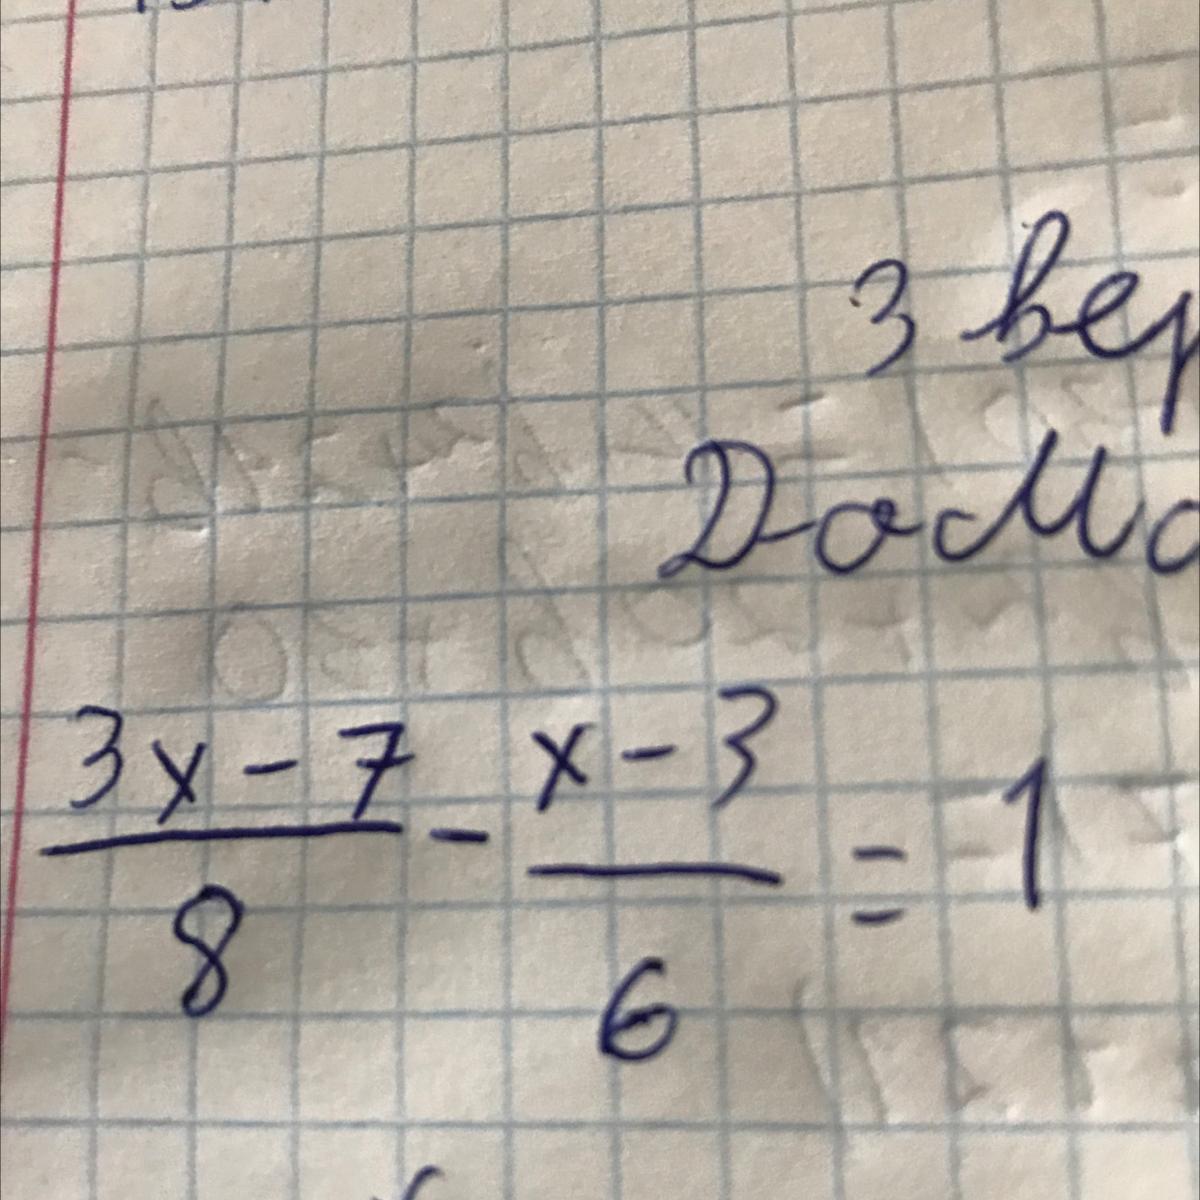 3 вер
Дома
3x - 7 / 8 - x - 3 / 6 = 1